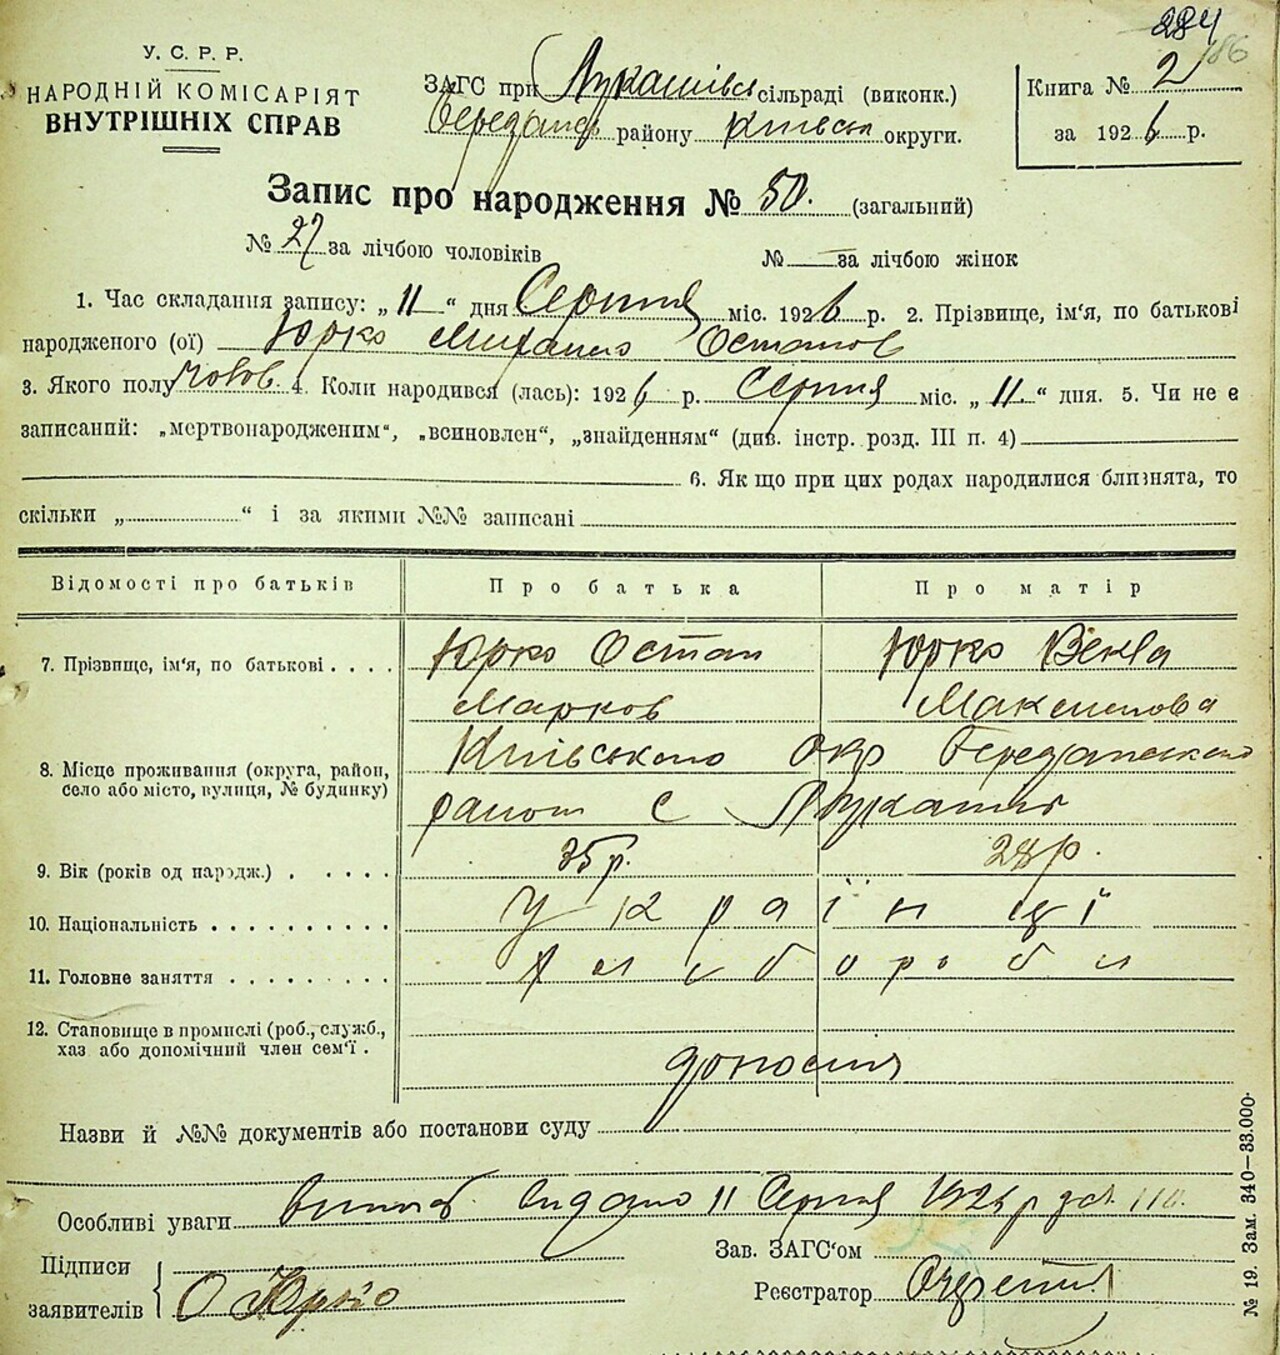 284
186
У. С. Р. Р.
НАРОДНІЙ КОМІСАРІЯТ
ВНУТРІШНІХ СПРАВ
ЗАГС при Лукашівськ сільраді (виконк.)
району Київськ округи.
Книга № 2
за 1926 р.
Запис про народження № 50. (загальний)
№ 27 за лічбою чоловіків
№ — за лічбою жінок
1. Час складання запису: „11“ дня Серпня міс. 1926 р. 2. Прізвище, ім'я, по батькові
народженого (ої) Юрко Михайло Остапов
3. Якого полу чолов. 4. Коли народився (лась): 1926 р. Серпня міс. „11.“ дня. 5. Чи не є
записаний: „мертвонародженим“, „всиновлен“, „знайденням“ (див. інстр. розд. III п. 4)
6. Як що при цих родах народилися близнята, то
скільки „ “ і за якими №№ записані
Відомості про батьків Про батька Про матір
7. Прізвище, ім'я, по батькові . . . . Юрко Остап Юрко Векла
Марков Максимова
8. Місце проживання (округа, район, Київського Окр
село або місто, вулиця, № будинку) району С
9. Вік (років од народж.) . . . . . 35 р. 28 р.
10. Національність . . . . . . . . . . Українці
11. Головне заняття . . . . . . . . . Хлібороби
12. Становище в промислі (роб., служб.,
хаз або допомічний член сем'ї .
Назви й №№ документів або постанови суду
Особливі уваги видано 11 Серпня 1926 р
Підписи
заявителів О Юрко
Зав. ЗАГС'ом
Реєстратор
№ 19. Зам. 340—33.000-